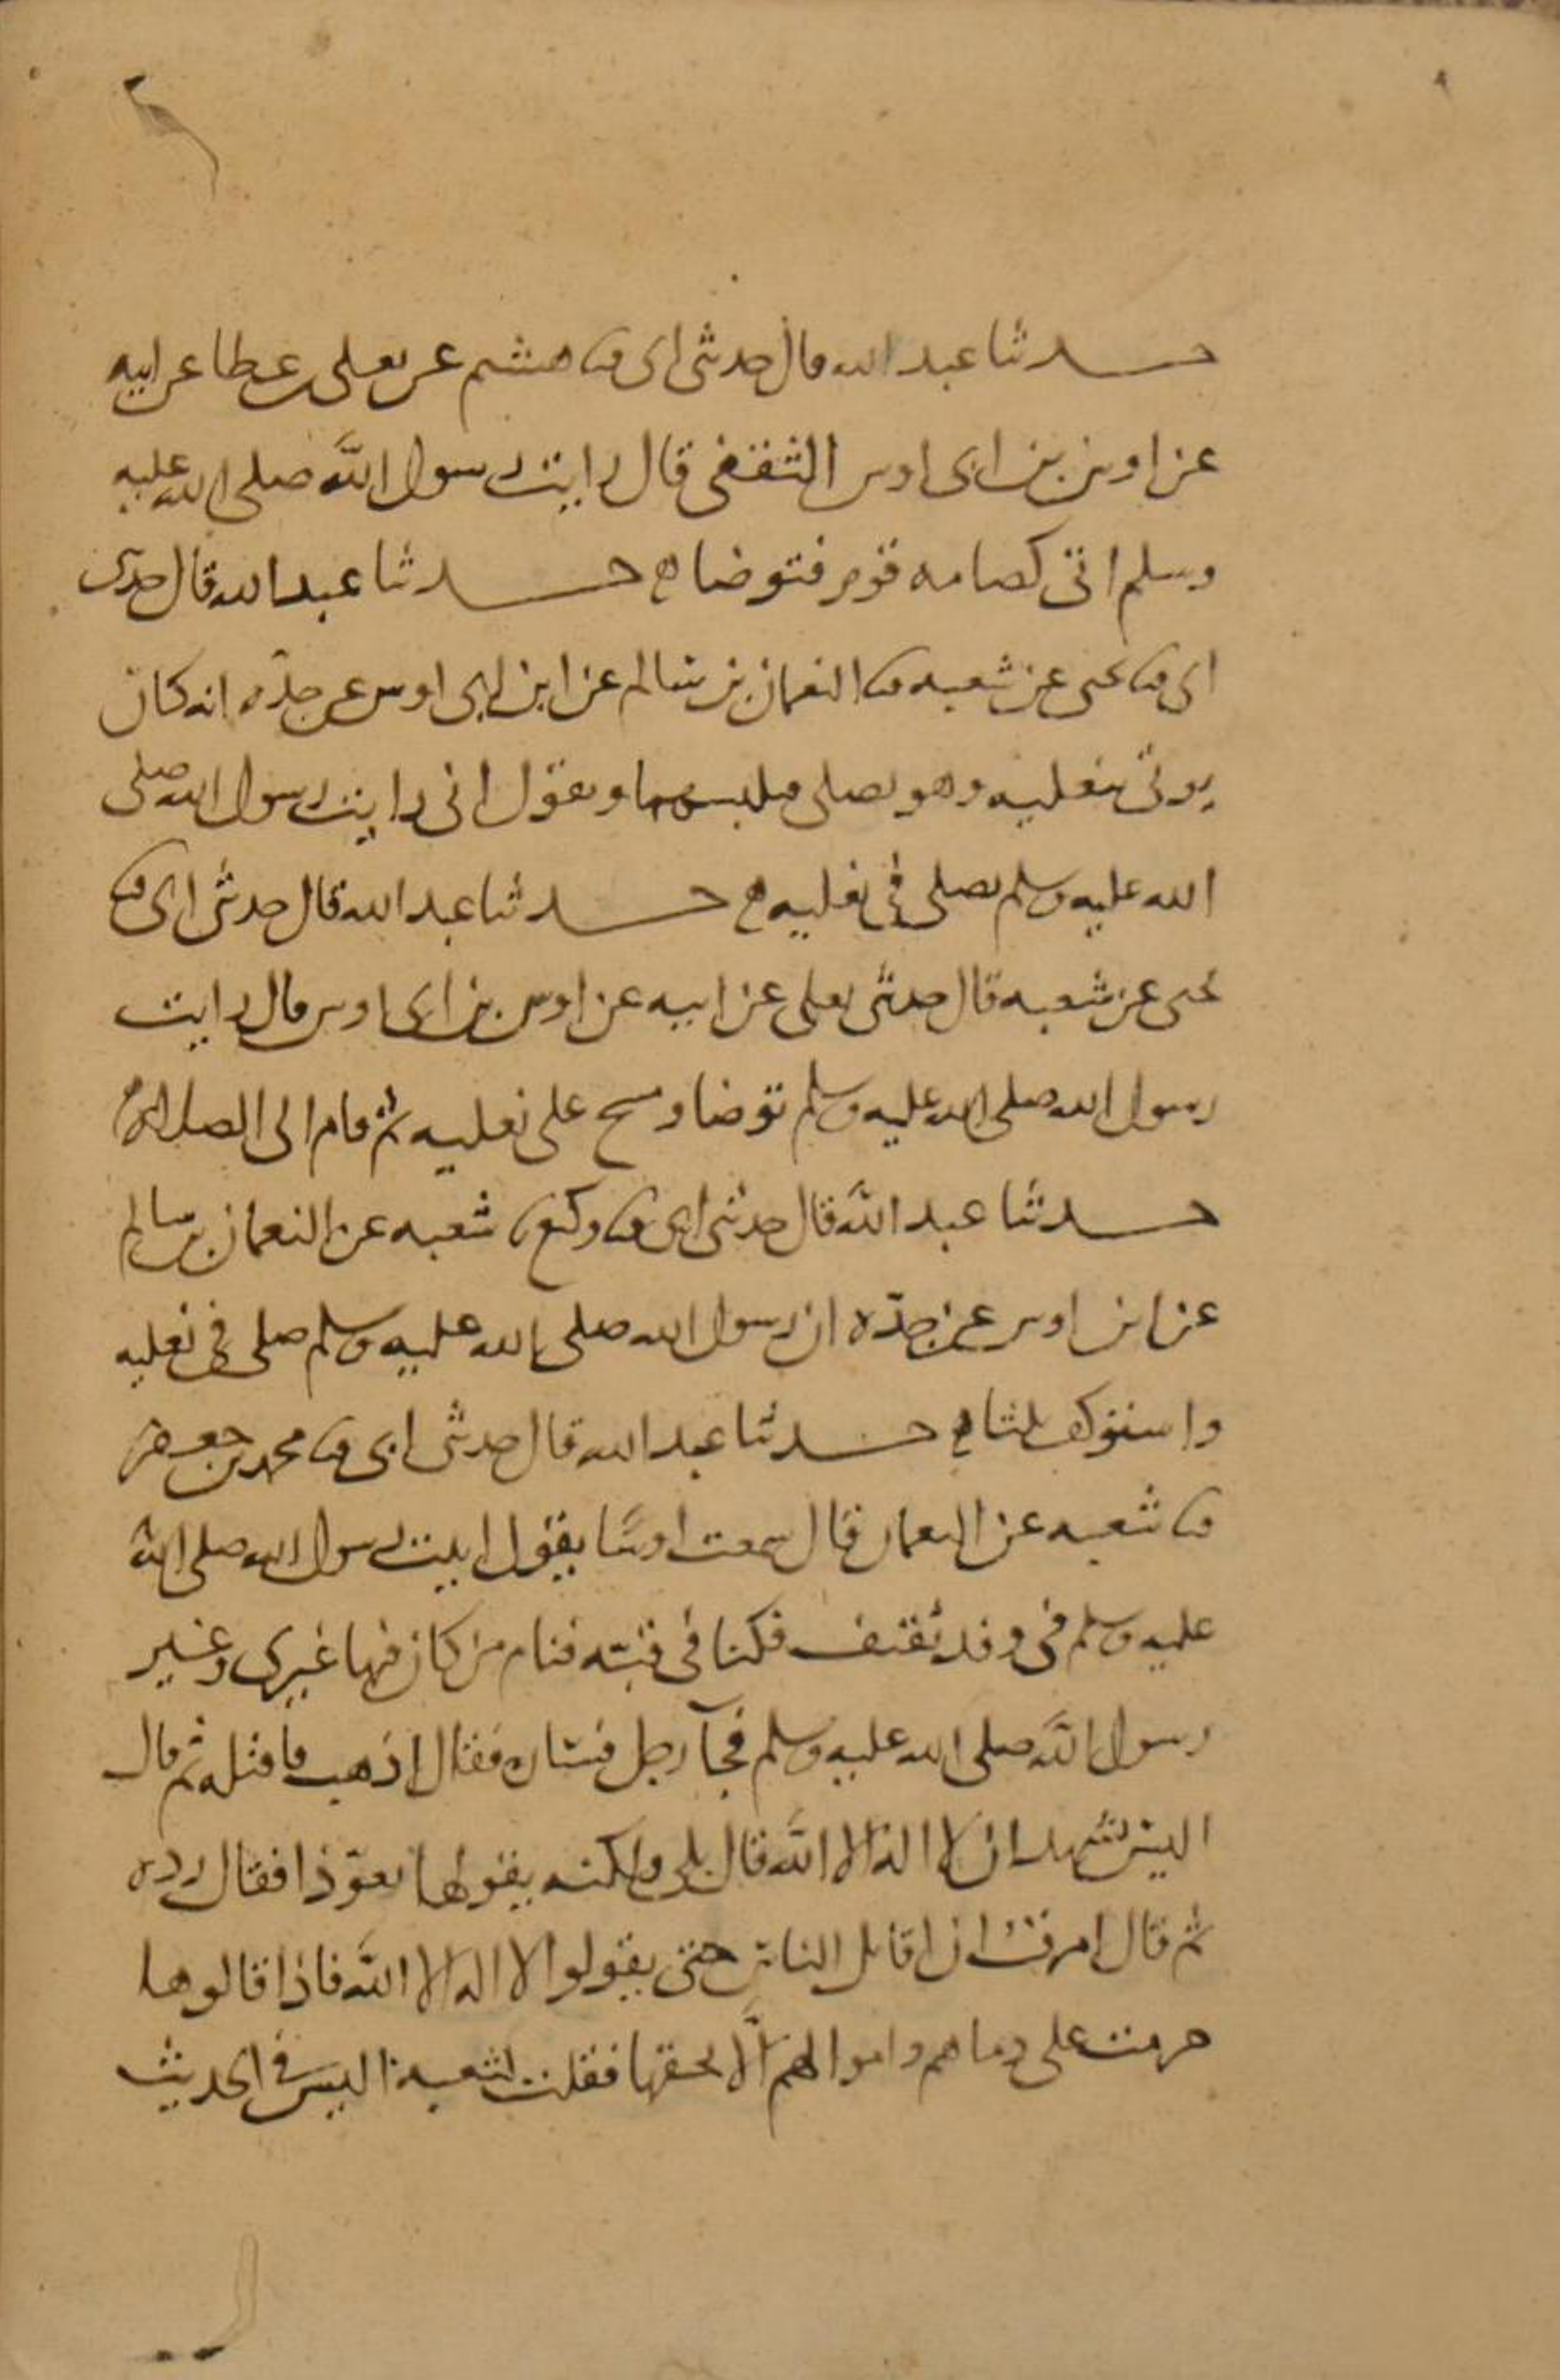 حدثنا عبد الله قال حدثنى ابى ثنا هشيم عن يعلى بن عطا عن ابيه
عن اوس بن ابى اوس الثقفى قال رايت رسول الله صلى الله عليه
وسلم اتى كظامه قوم فتوضا ه حدثنا عبد الله قال حدثنى
ابى ثنا يحيى عن شعبه ثنا النعمان بن سالم عن ابن ابى اوس عن جده انه كان
يوتى بنعليه وهو يصلى فيلبسهما ويقول انى رايت رسول الله صلى
الله عليه وسلم يصلى فى نعليه ه حدثنا عبد الله قال حدثنى ابى ثنا
يحيى عن شعبه قال حدثنى يعلى عن ابيه عن اوس بن ابى اوس قال رايت
رسول الله صلى الله عليه وسلم توضا ومسح على نعليه ثم قام الى الصلاه
حدثنا عبد الله قال حدثنى ابى ثنا وكيع ثنا شعبه عن النعمان بن سالم
عن ابن اوس عن جده ان رسول الله صلى الله عليه وسلم صلى فى نعليه
واستوكف ثلثا ه حدثنا عبد الله قال حدثنى ابى ثنا محمد بن جعفر
ثنا شعبه عن النعمان قال سمعت اوسا يقول اتيت رسول الله صلى الله
عليه وسلم فى وفد ثقيف فكنا فى قبته فنام من كان فيها غيرى وغير
رسول الله صلى الله عليه وسلم فجآ رجل فساره فقال اذهب فاقتله ثم قال
اليس يشهد ان لا اله الا الله قال بلى ولكنه يقولها تعوذا فقال رده
ثم قال امرت ان اقاتل الناس حتى يقولوا لا اله الا الله فاذا قالوها
حرمت على دماهم واموالهم الا بحقها فقلت لشعبة اليس فى الحديث